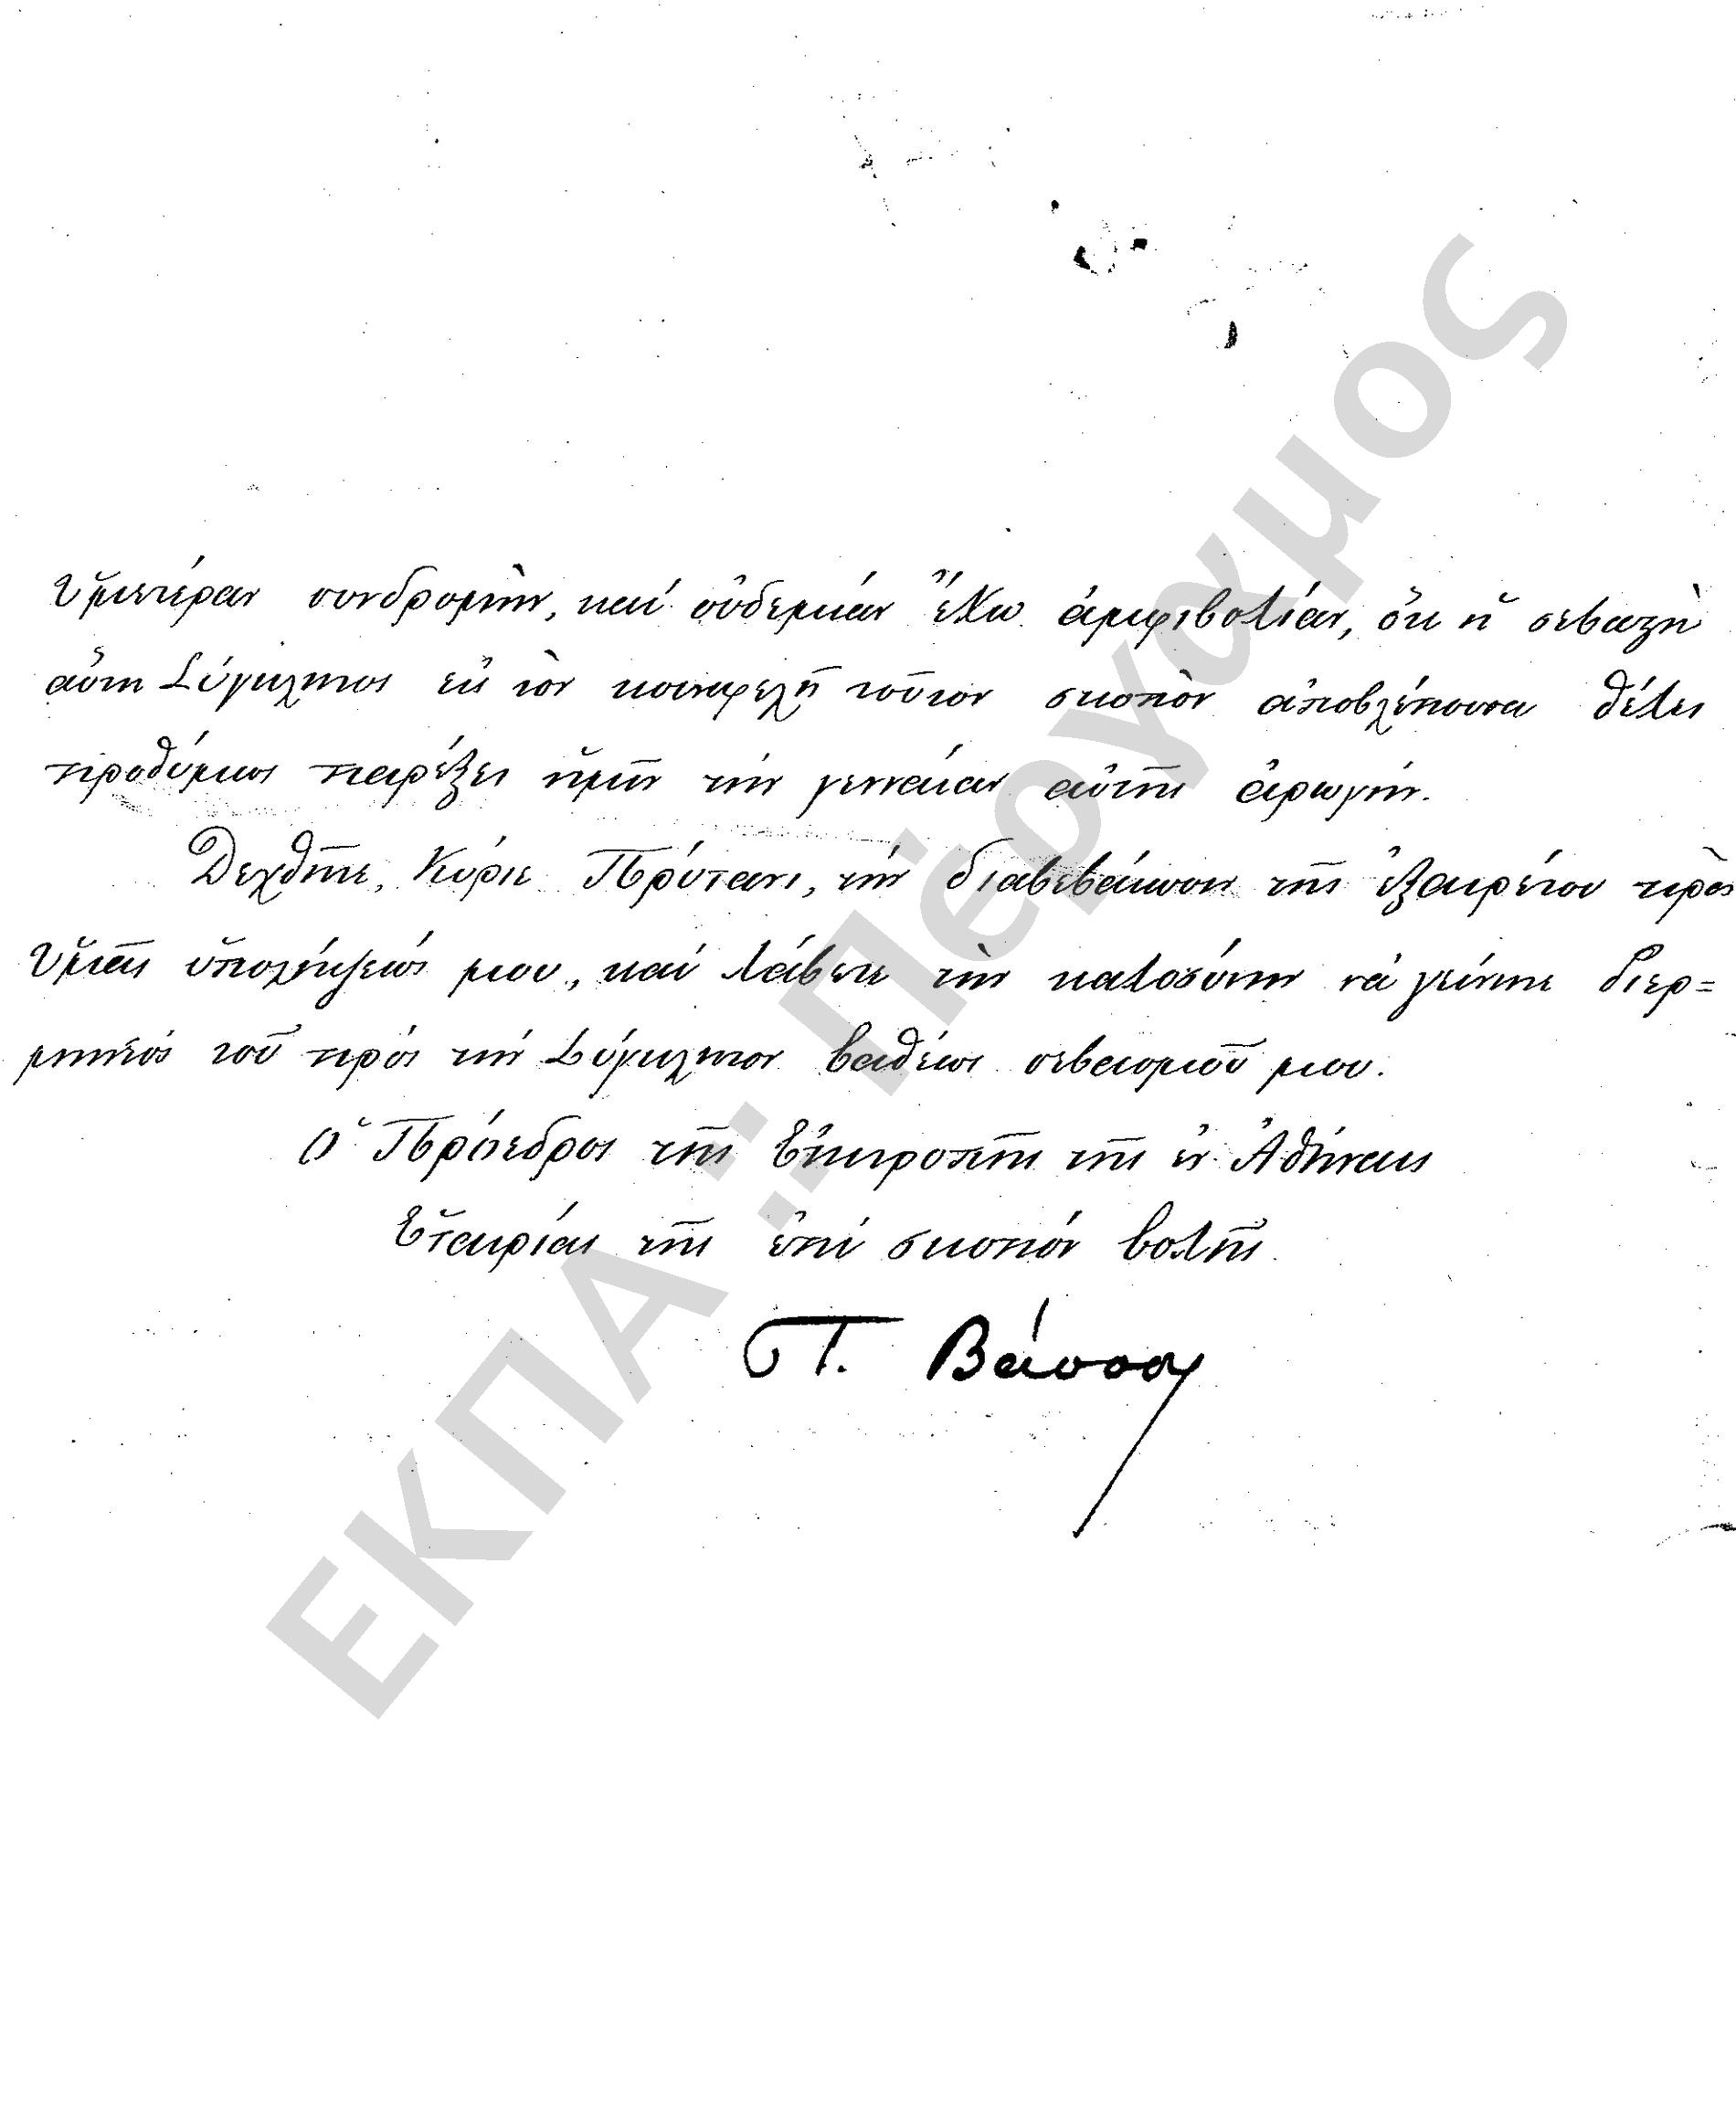 Ὑμετέραν συνδρομὴν, καὶ οὐδεμίαν ἔχω ἀμφιβολίαν, ὅτι ἡ σεβαστὴ
αὕτη Σύγκλητος εἰς τὸν κοινωφελῆ τοῦτον σκοπὸν ἀποβλέπουσα θέλει
προθύμως παρέξει ἡμῖν τὴν γενναίαν αὐτῆς ἀρωγήν.
Δεχθῆτε, Κύριε Πρύτανι, τὴν διαβεβαίωσιν τῆς ἐξαιρέτου πρὸς
Ὑμᾶς ὑπολήψεώς μου, καὶ λάβετε τὴν καλοσύνην νὰ γείνητε διερ=
μηνεὺς τοῦ πρὸς τὴν Σύγκλητον βαθέως σεβασμοῦ μου.
Ὁ Πρόεδρος τῆς Ἐπιτροπῆς τῆς ἐν Ἀθήναις
Ἑταιρίας τῆς ἐπὶ σκοπὸν βολῆς.
Π. Βάσσος
ΕΚΠΑ :: Πέργαμος